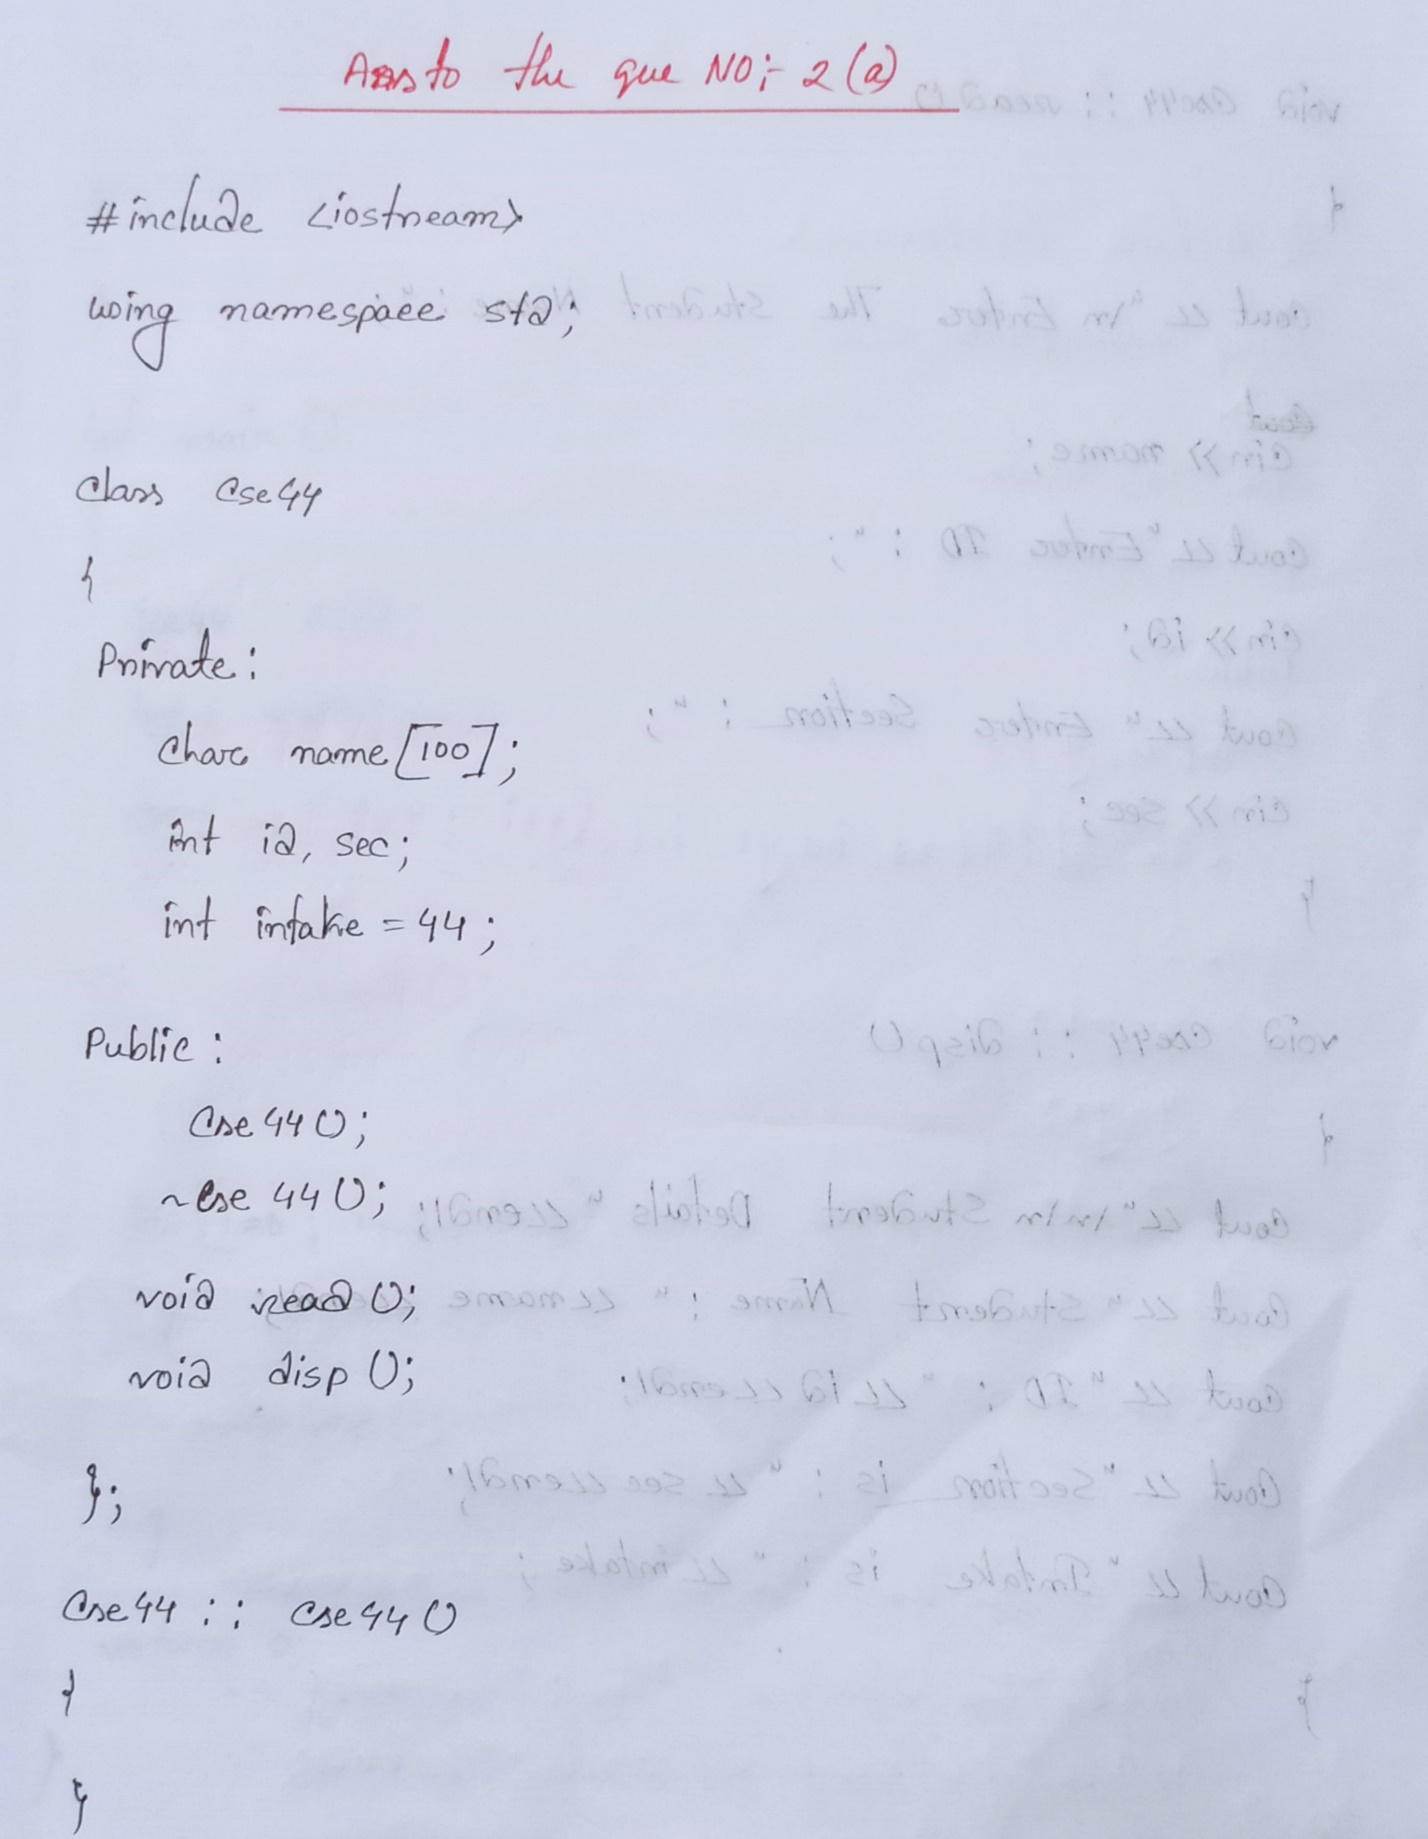 Ans to the que NO:- 2 (a)
#include <iostream>
using namespace std;
Class Cse44
{
Private:
Char name [100];
int id, sec;
int intake = 44;
Public:
Cse44 ();
~Cse 44 ();
void read ();
void disp ();
};
Cse44 :: Cse44 ()
{
}